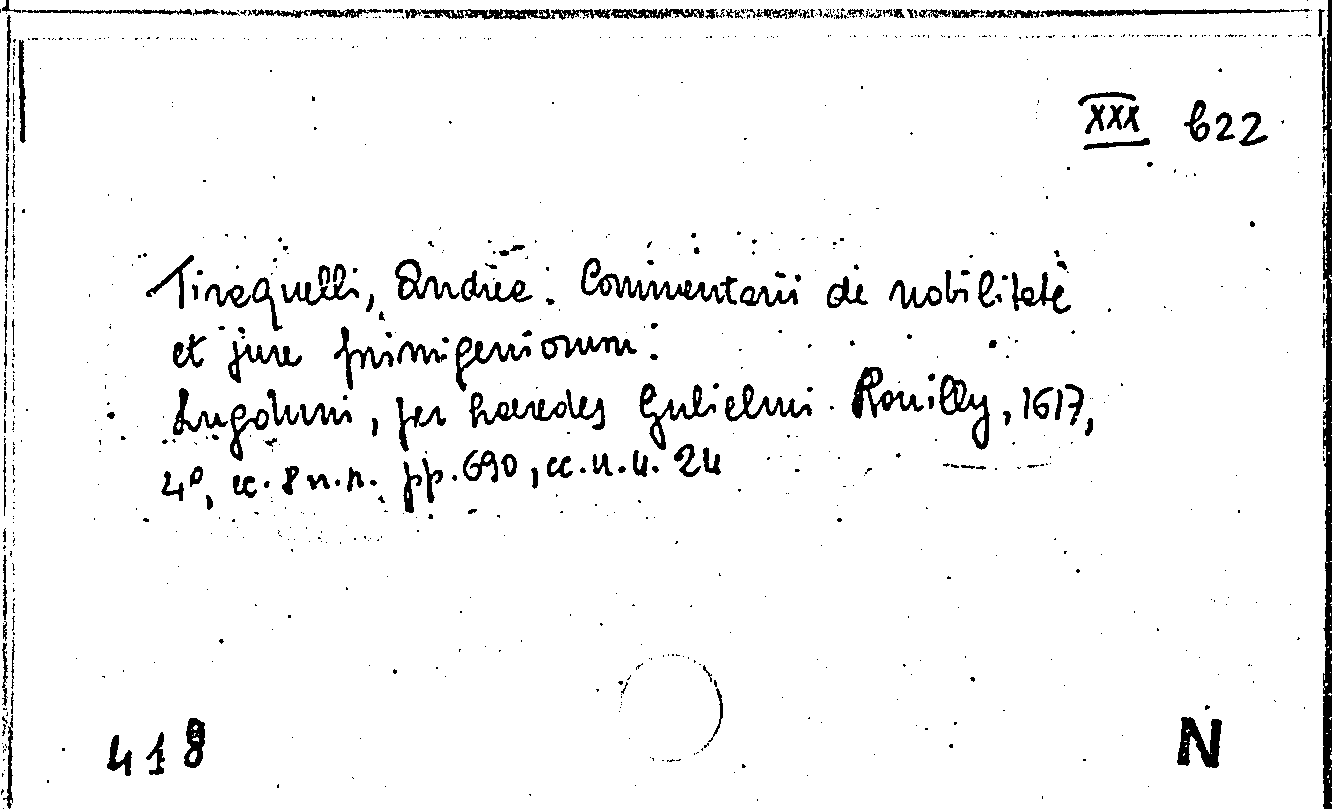 XXX b22
Tiraquelli, Andree. Commentarii de nobilitate
et jure primigeniorum.
Lugduni, per haeredes Gulielmi Rouilly, 1617,
4°, cc. 8 n.n. pp. 690, cc. n.n. 24
418
N